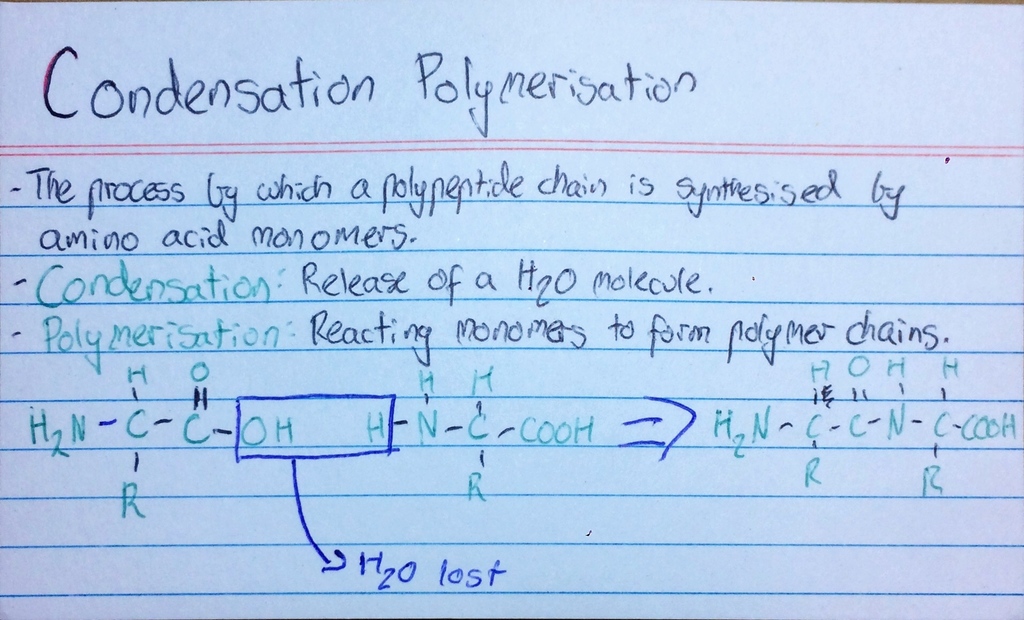 Condensation Polymerisation
- The process by which a polypeptide chain is synthesised by
amino acid monomers.
- Condensation: Release of a H2O molecule.
- Polymerisation: Reacting monomers to form polymer chains.
H O H H H O H H
H2N - C - C - OH H - N - C - COOH ⇒ H2N - C - C - N - C - COOH
R R R R
H2O lost